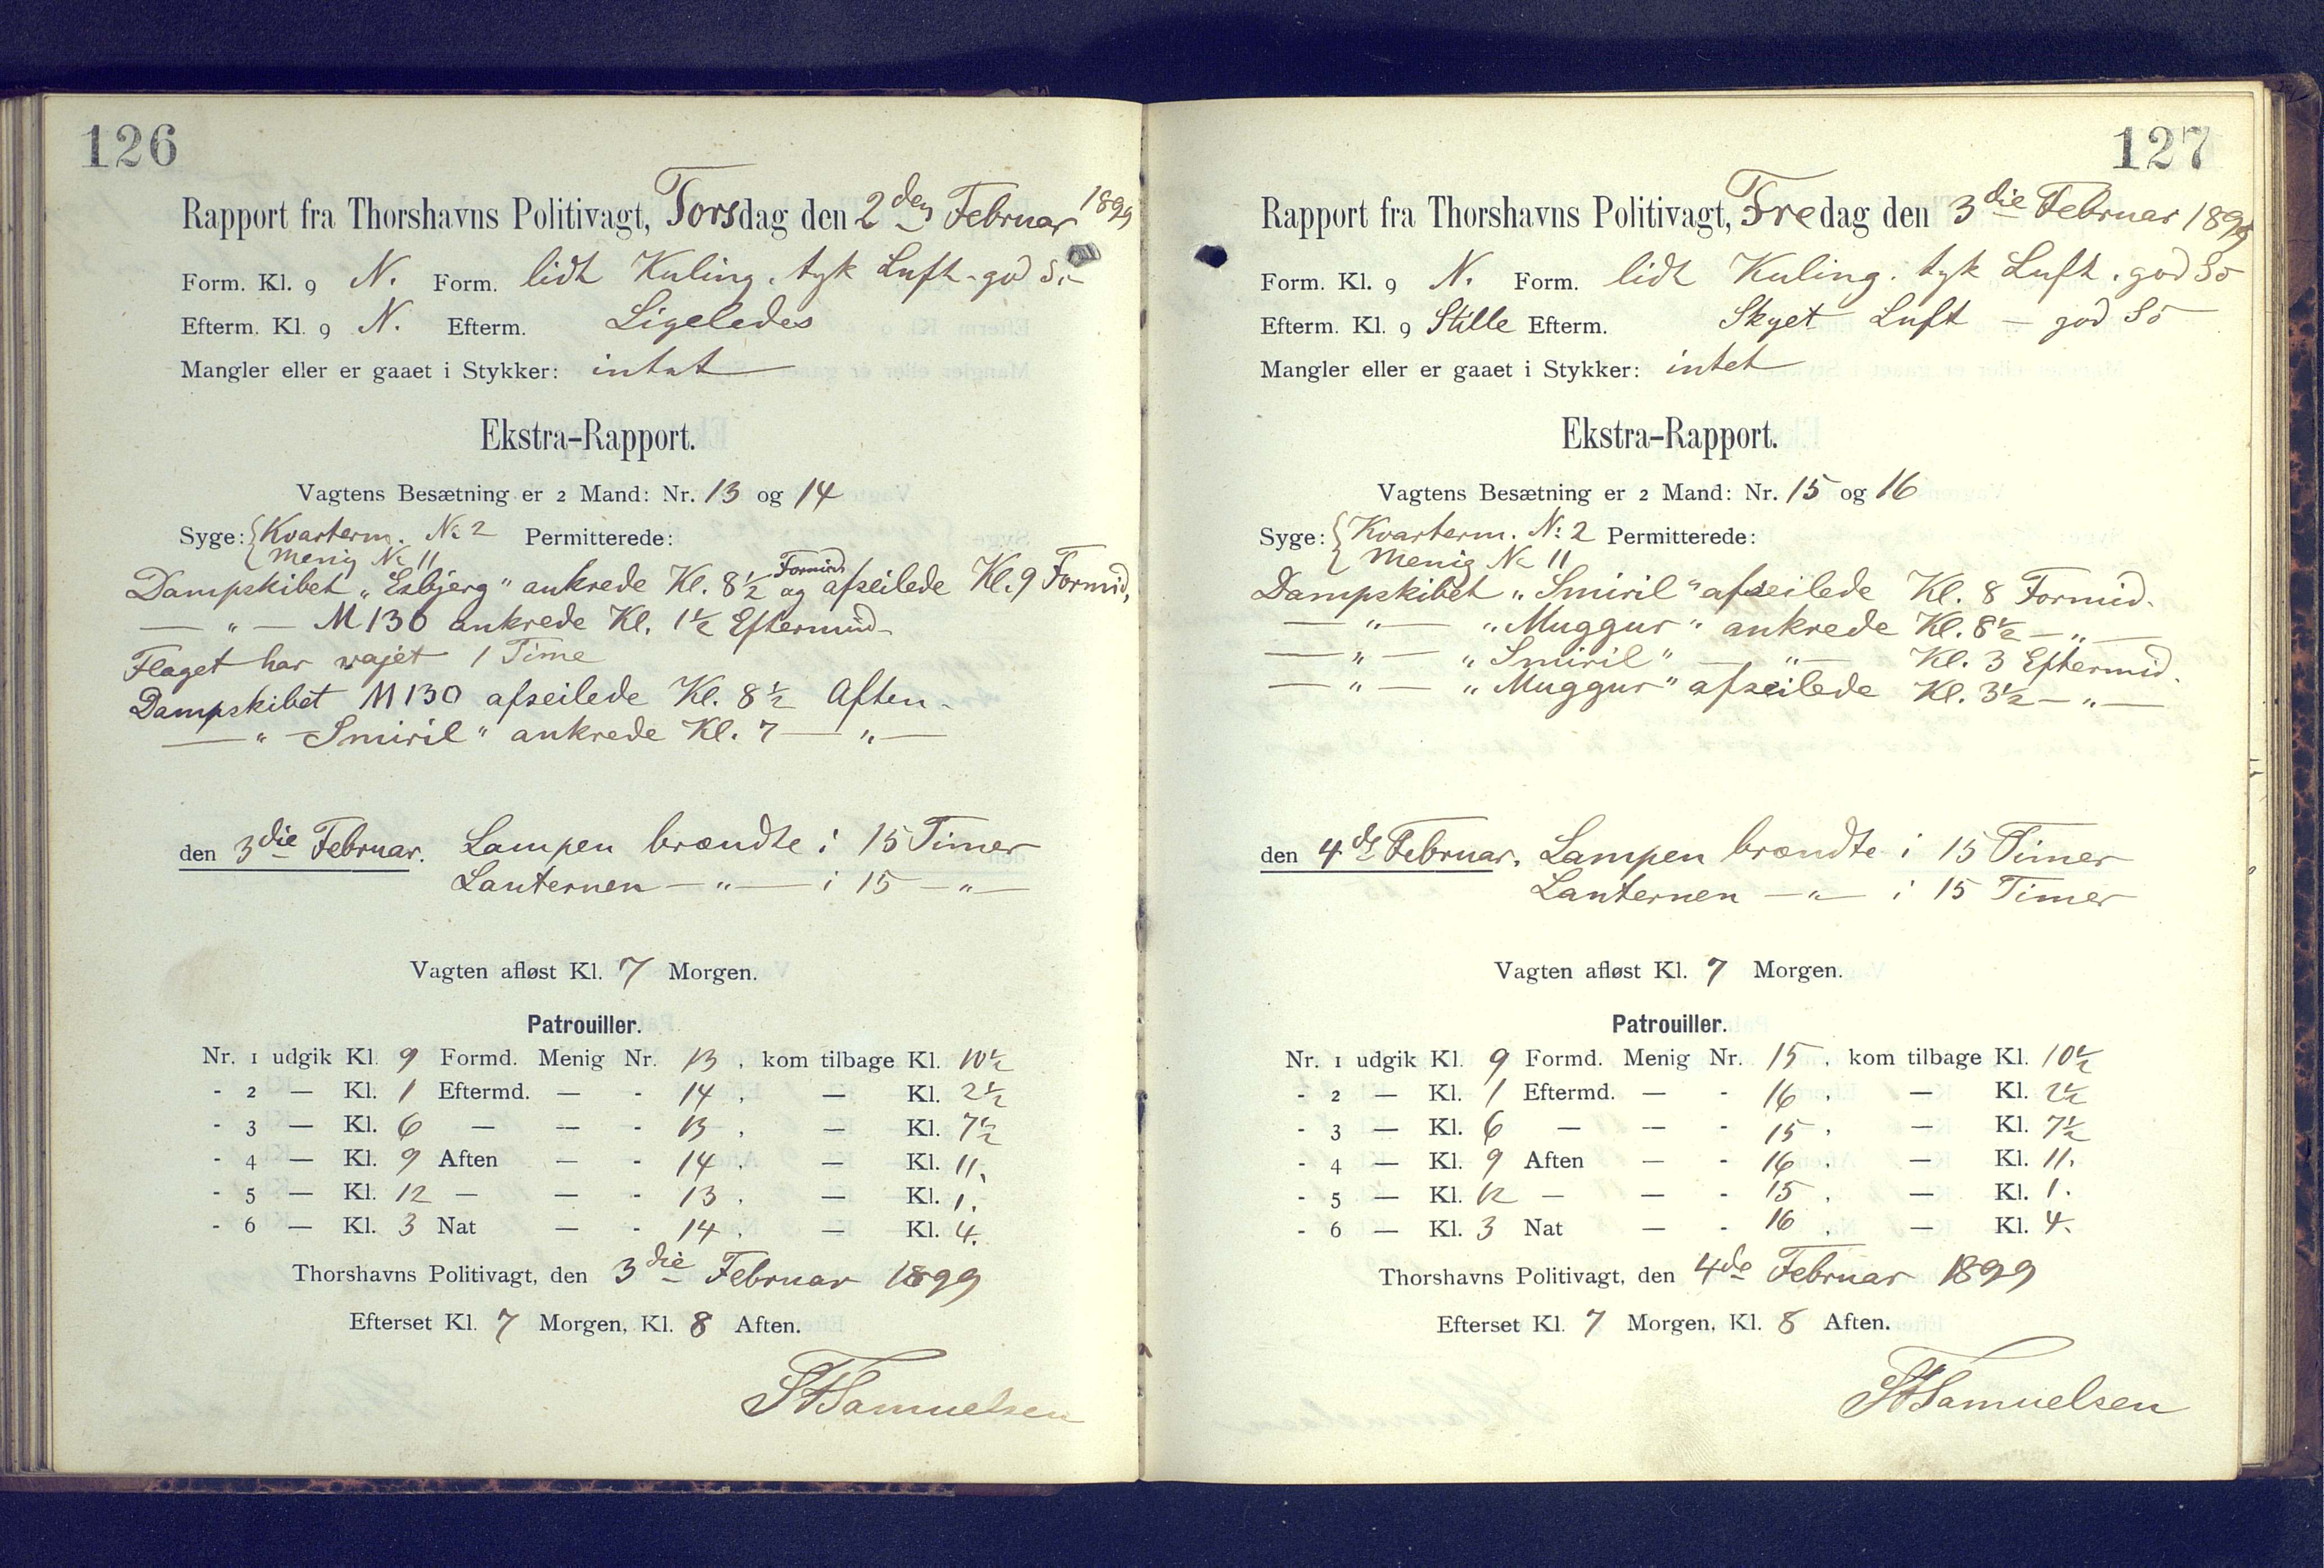 126
Rapport fra Thorshavns Politivagt, Torsdag den 2den Februar 1899
Form. Kl. 9 N. Form. lidt Kuling. tyk Luft - god Sö
Efterm. Kl. 9 N. Efterm. Ligeledes
Mangler eller er gaaet i Stykker: intet
Ekstra-Rapport.
Vagtens Besætning er 2 Mand: Nr. 13 og 14
Syge: { Kvarterm. No 2 Permitterede:
Menig No 11
Dampskibet „Esbjerg" ankrede Kl. 8½ Formid. og afseilede Kl. 9 Formid.
— „ — M 130 ankrede Kl. 1½ Eftermid.
Flaget har vajet 1 Time
Dampskibet M 130 afseilede Kl. 8½ Aften.
— „ — Smiril" ankrede Kl. 7 — „ —
den 3die Februar. Lampen brændte i 15 Timer
Lanternen — „ — i 15 — „ —
Vagten afløst Kl. 7 Morgen.
Patrouiller.
Nr. 1 udgik Kl. 9 Formd. Menig Nr. 13, kom tilbage Kl. 10½
- 2 — Kl. 1 Eftermd. — - 14, — Kl. 2½
- 3 — Kl. 6 — — - 13, — Kl. 7½
- 4 — Kl. 9 Aften — - 14, — Kl. 11.
- 5 — Kl. 12 — — - 13, — Kl. 1.
- 6 — Kl. 3 Nat — - 14, — Kl. 4.
Thorshavns Politivagt, den 3die Februar 1899
Efterset Kl. 7 Morgen, Kl. 8 Aften.
Samuelsen
127
Rapport fra Thorshavns Politivagt, Fredag den 3die Februar 1899
Form. Kl. 9 N. Form. lidt Kuling. tyk Luft. god Sö
Efterm. Kl. 9 Stille Efterm. Skyet Luft — god Sö
Mangler eller er gaaet i Stykker: intet
Ekstra-Rapport.
Vagtens Besætning er 2 Mand: Nr. 15 og 16
Syge: { Kvarterm. No: 2 Permitterede:
Menig No 11
Dampskibet „Smiril" afseilede Kl. 8 Formid.
— „ — „Muggur" ankrede Kl. 8½ — „ —
— „ — „Smiril" — „ — Kl. 3 Eftermid.
— „ — „Muggur" afseilede Kl. 3½ — „ —
den 4de Februar. Lampen brændte i 15 Timer
Lanternen — „ — i 15 Timer
Vagten afløst Kl. 7 Morgen.
Patrouiller.
Nr. 1 udgik Kl. 9 Formd. Menig Nr. 15, kom tilbage Kl. 10½
- 2 — Kl. 1 Eftermd. — - 16, — Kl. 2½
- 3 — Kl. 6 — — - 15, — Kl. 7½
- 4 — Kl. 9 Aften — - 16, — Kl. 11.
- 5 — Kl. 12 — — - 15, — Kl. 1.
- 6 — Kl. 3 Nat — - 16, — Kl. 4.
Thorshavns Politivagt, den 4de Februar 1899
Efterset Kl. 7 Morgen, Kl. 8 Aften.
Samuelsen